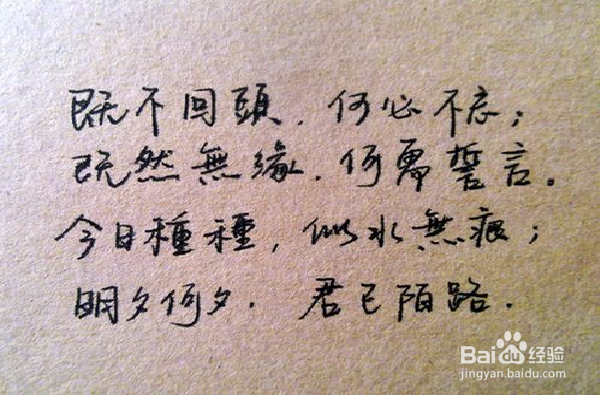 既不回頭，何必不忘；
既然無緣，何需誓言。
今日種種，似水無痕；
明夕何夕，君已陌路．
Bai 经验
jingyan.baidu.com